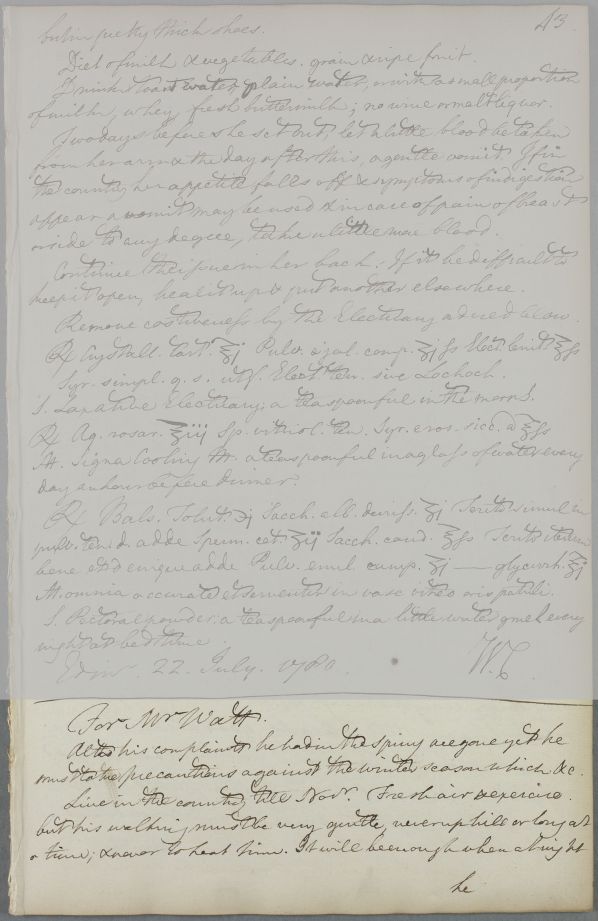 but in pretty thick shoes.
43
Diet of milk & vegetables. grain & ripe fruit.
Drink toast water, plain water, or with a small proportion
of milk, whey, fresh buttermilk; no wine or malt liquor.
Two days before she set out, let a little blood be taken
from her arm & the day after this, a gentle vomit. If in
the country her appetite falls off & symptoms of indigestion
appear a vomit may be used & in case of pain of breast
or side to any degree, take a little more blood.
Continue the issue in her back: If it be difficult to
keep it open, heal it up & put another elsewhere.
Remove costiveness by the Electuary adv. below.
℞ Crystall. tart. ℥j Pulv. e jal. comp. ʒj ſs Elect. lenit. ℥ſs
Syr. simpl. q. s. ut f. Elect. ten. sive Lochoch.
S. Laxative Electuary; a teaspoonful in the morn.
℞ Aq. rosar. ℥iij Sp. vitriol. ten. Syr. e ros. sicc. a ℥ſs
M. Signa Cooling M. a teaspoonful in a glass of water every
day an hour before dinner.
℞ Bals. Tolut. ℈j Sacch. alb. duriss. ʒj Teritis simul in
pulv. ten. d. adde Sperm. cet. ʒij Sacch. cand. ℥ſs Teritis iterum
bene et denique adde Pulv. emul. comp. ʒj — glycirrh. ʒj
M. omnia accurate et serventur in vase vitreo oris patuli.
S. Pectoral powder: a teaspoonful in a little water gruel every
night at bed time.
Edinr. 22. July. 1780.
W.C
For Mr Watt.
Altho his complaints he had in the spring are gone yet he
must take precautions against the winter season which &c.
Live in the country till Novr. Fresh air & exercise.
but his walking must be very gentle, never up hill or long at
a time; & never to heat him. It will be enough when at night
he